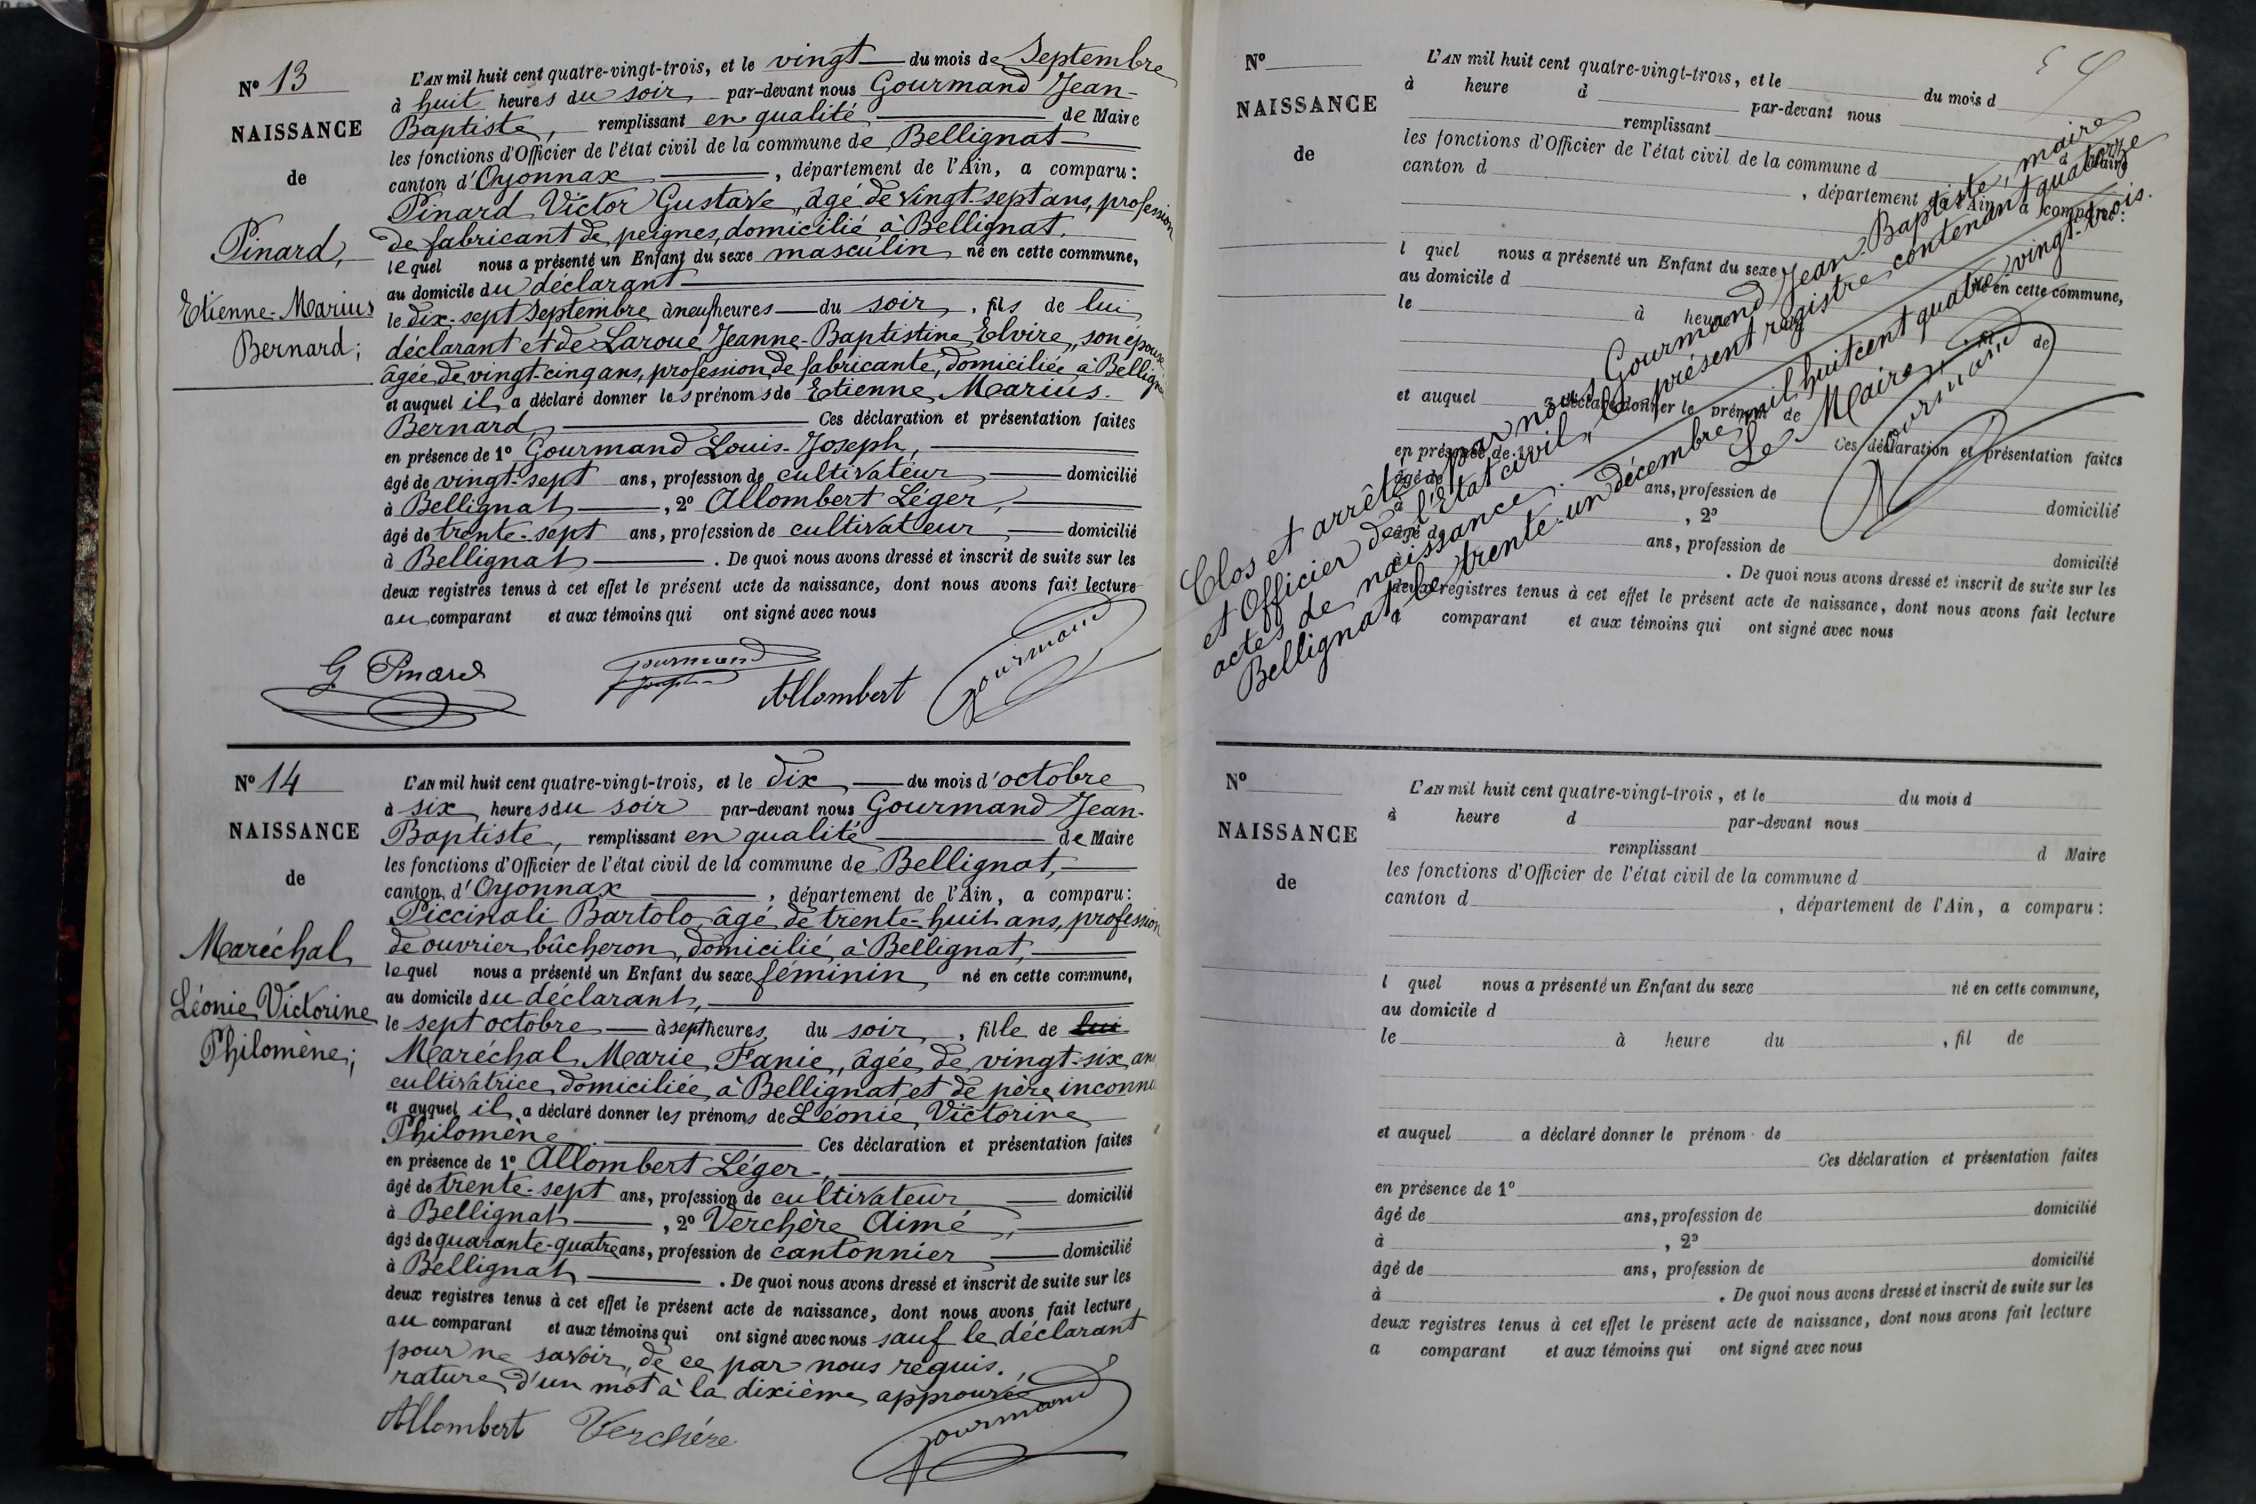 N° 13
NAISSANCE
de
Pinard,
Etienne-Marius
Bernard;
L'AN mil huit cent quatre-vingt-trois, et le vingt du mois de Septembre
à huit heures du soir par-devant nous Gourmand Jean-
Baptiste, remplissant en qualité de Maire
les fonctions d'Officier de l'état civil de la commune de Bellignat
canton d'Oyonnax, département de l'Ain, a comparu:
Pinard Victor Gustave, âgé de vingt-sept ans, profession
de fabricant de peignes, domicilié à Bellignat.
lequel nous a présenté un Enfant du sexe masculin né en cette commune,
au domicile du déclarant
le dix-sept Septembre à neuf heures du soir, fils de lui
déclarant et de Laroué Jeanne-Baptistine Elvire, son épouse,
âgée de vingt-cinq ans, profession de fabricante, domiciliée à Bellignat
et auquel il a déclaré donner les prénoms de Etienne Marius.
Bernard, Ces déclaration et présentation faites
en présence de 1° Gourmand Louis-Joseph,
âgé de vingt-sept ans, profession de cultivateur domicilié
à Bellignat, 2° Allombert Léger,
âgé de trente-sept ans, profession de cultivateur domicilié
à Bellignat. De quoi nous avons dressé et inscrit de suite sur les
deux registres tenus à cet effet le présent acte de naissance, dont nous avons fait lecture
au comparant et aux témoins qui ont signé avec nous
G Pinard
Gourmand
Joseph
Allombert
Gourmand
N° 14
NAISSANCE
de
Maréchal
Léonie Victorine
Philomène;
L'AN mil huit cent quatre-vingt-trois, et le dix du mois d'octobre
à six heures du soir par-devant nous Gourmand Jean-
Baptiste, remplissant en qualité de Maire
les fonctions d'Officier de l'état civil de la commune de Bellignat,
canton d'Oyonnax, département de l'Ain, a comparu:
Piccinali Bartolo, âgé de trente-huit ans, profession
de ouvrier bûcheron, domicilié à Bellignat,
lequel nous a présenté un Enfant du sexe féminin né en cette commune,
au domicile du déclarant,
le sept octobre à sept heures du soir, fille de lui
Maréchal Marie Fanie, âgée de vingt-six ans
cultivatrice domiciliée à Bellignat et de père inconnu
et auquel il a déclaré donner les prénoms de Léonie Victorine
Philomène. Ces déclaration et présentation faites
en présence de 1° Allombert Léger,
âgé de trente-sept ans, profession de cultivateur domicilié
à Bellignat, 2° Verchère Aimé,
âgé de quarante-quatre ans, profession de cantonnier domicilié
à Bellignat. De quoi nous avons dressé et inscrit de suite sur les
deux registres tenus à cet effet le présent acte de naissance, dont nous avons fait lecture
au comparant et aux témoins qui ont signé avec nous sauf le déclarant
pour ne savoir, de ce par nous requis.
rature d'un mot à la dixième approuvée
Allombert Verchère
Gourmand
N°
NAISSANCE
de
L'AN mil huit cent quatre-vingt-trois, et le du mois d
à heure d par-devant nous
remplissant d Maire
les fonctions d'Officier de l'état civil de la commune d
canton d, département de l'Ain, a comparu:
l quel nous a présenté un Enfant du sexe né en cette commune,
au domicile d
le à heure du, fil de
et auquel a déclaré donner le prénom de
Ces déclaration et présentation faites
en présence de 1°
âgé de ans, profession de domicilié
à, 2°
âgé de ans, profession de domicilié
à. De quoi nous avons dressé et inscrit de suite sur les
deux registres tenus à cet effet le présent acte de naissance, dont nous avons fait lecture
a comparant et aux témoins qui ont signé avec nous
Clos et arrêté par nous Gourmand Jean-Baptiste, maire
et Officier de l'état civil, le présent registre contenant quatorze
actes de naissance.
Bellignat le trente-un décembre mil huit cent quatre vingt-trois.
Le Maire,
Gourmand
N°
NAISSANCE
de
L'AN mil huit cent quatre-vingt-trois, et le du mois d
à heure d par-devant nous
remplissant d Maire
les fonctions d'Officier de l'état civil de la commune d
canton d, département de l'Ain, a comparu:
l quel nous a présenté un Enfant du sexe né en cette commune,
au domicile d
le à heure du, fil de
et auquel a déclaré donner le prénom de
Ces déclaration et présentation faites
en présence de 1°
âgé de ans, profession de domicilié
à, 2°
âgé de ans, profession de domicilié
à. De quoi nous avons dressé et inscrit de suite sur les
deux registres tenus à cet effet le présent acte de naissance, dont nous avons fait lecture
a comparant et aux témoins qui ont signé avec nous